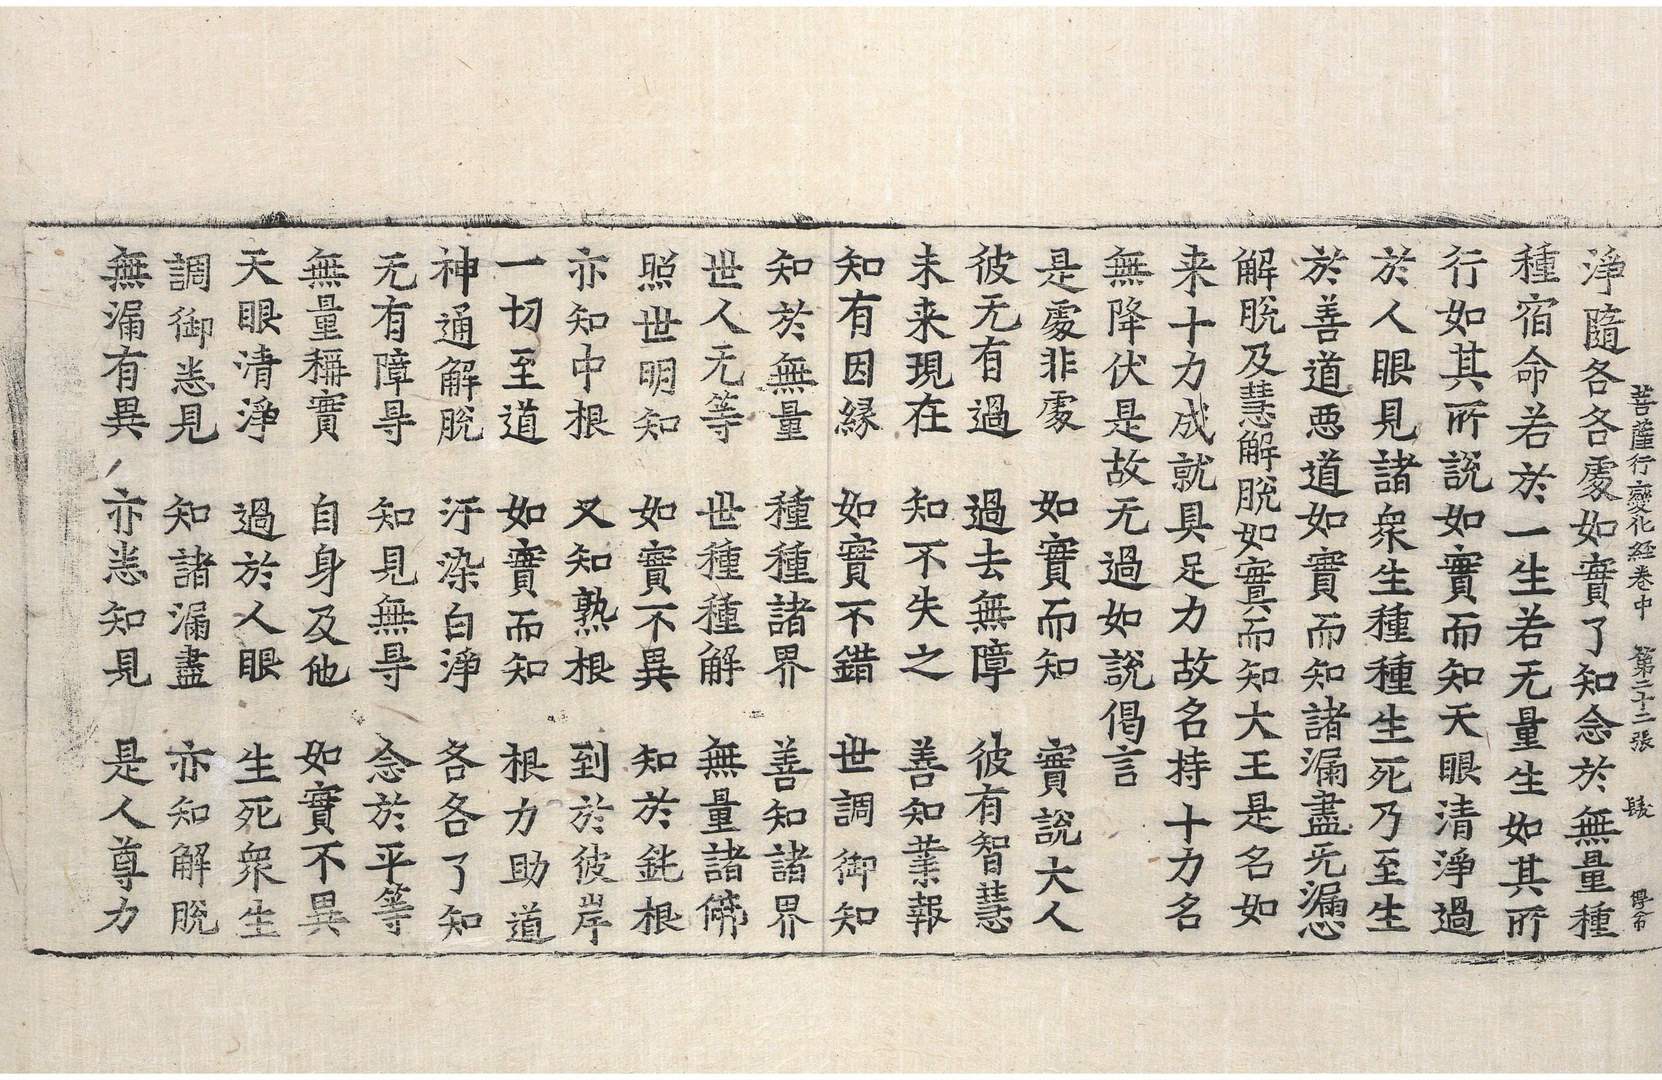 菩薩行變化經卷中　第二十二張　髲
淨隨各各處如實了知念於無量種
種宿命若於一生若无量生如其所
行如其所說如實而知天眼清淨過
於人眼見諸眾生種種生死乃至生
於善道惡道如實而知諸漏盡无漏心
解脫及慧解脫如實而知大王是名如
来十力成就具足力故名持十力名
無降伏是故无過如說偈言
是處非處　如實而知　實說大人
彼无有過　過去無障　彼有智慧
未来現在　知不失之　善知業報
知有因緣　如實不錯　世調御知
知於無量　種種諸界　善知諸界
世人无等　世種種解　無量諸佛
照世明知　如實不異　知於鈍根
亦知中根　又知熟根　到於彼岸
一切至道　如實而知　根力助道
神通解脫　汙染白淨　各各了知
无有障㝵　知見無㝵　念於平等
無量稱實　自身及他　如實不異
天眼清淨　過於人眼　生死眾生
調御悉見　知諸漏盡　亦知解脫
無漏有異　亦悉知見　是人尊力